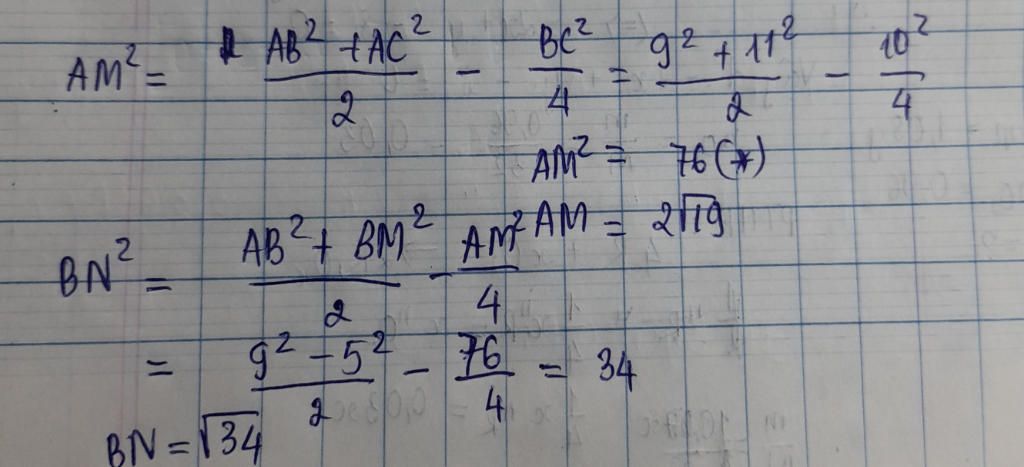 AM² = (AB² + AC²)/2 - BC²/4 = (9² + 11²)/2 - 10²/4
AM² = 76(*)
AM = 2√19
BN² = (AB² + BM²)/2 - AM²/4
= (9² - 5²)/2 - 76/4 = 34
BN = √34